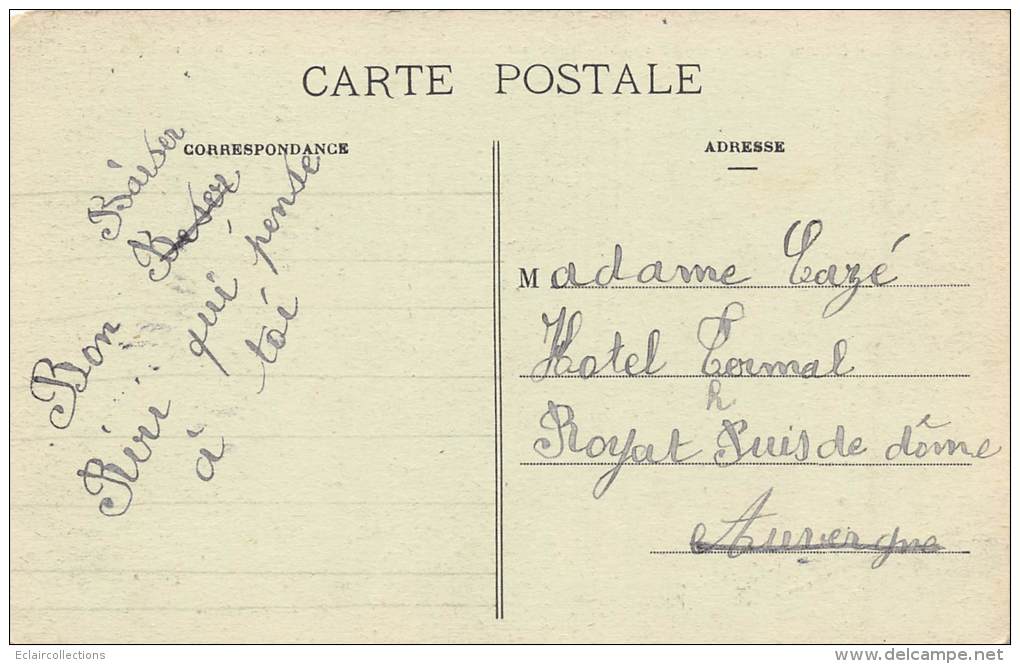 CARTE POSTALE
CORRESPONDANCE
Bon Baiser
Beser
Riri qui pense
à toi
ADRESSE
Madame Cazé
Hotel Termal
h
Royat Puis de dôme
Auvergne
Eclaircollections
delcampe.net